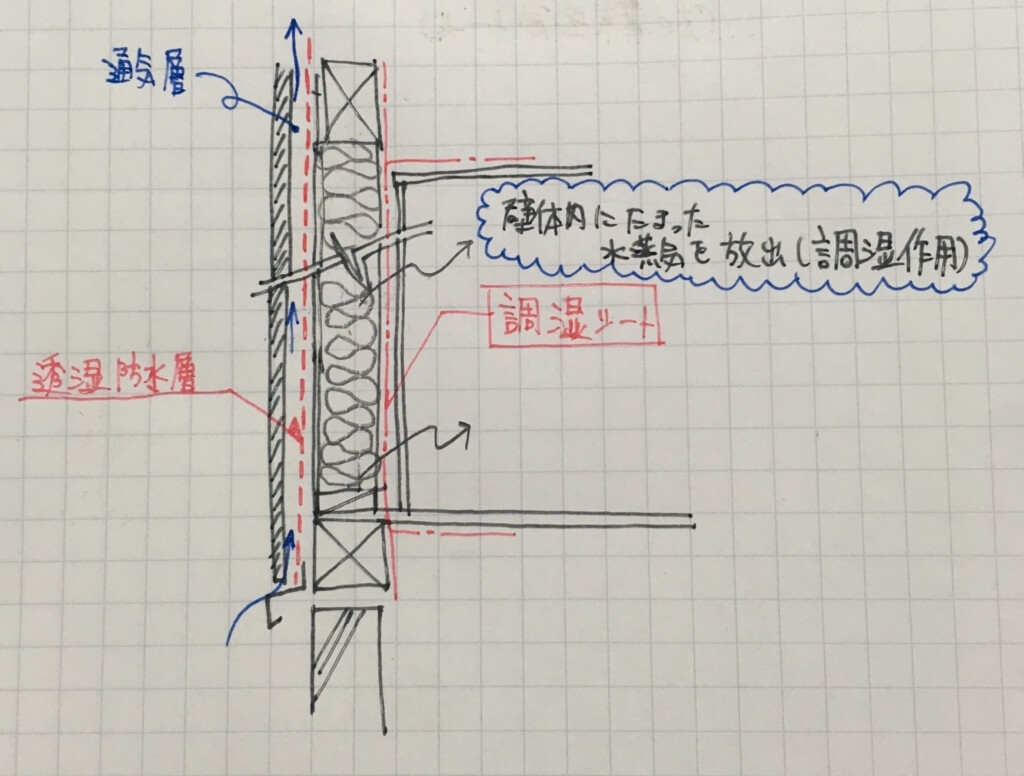 通気層
壁体内にたまった
水蒸気を放出(調湿作用)
調湿シート
透湿防水層